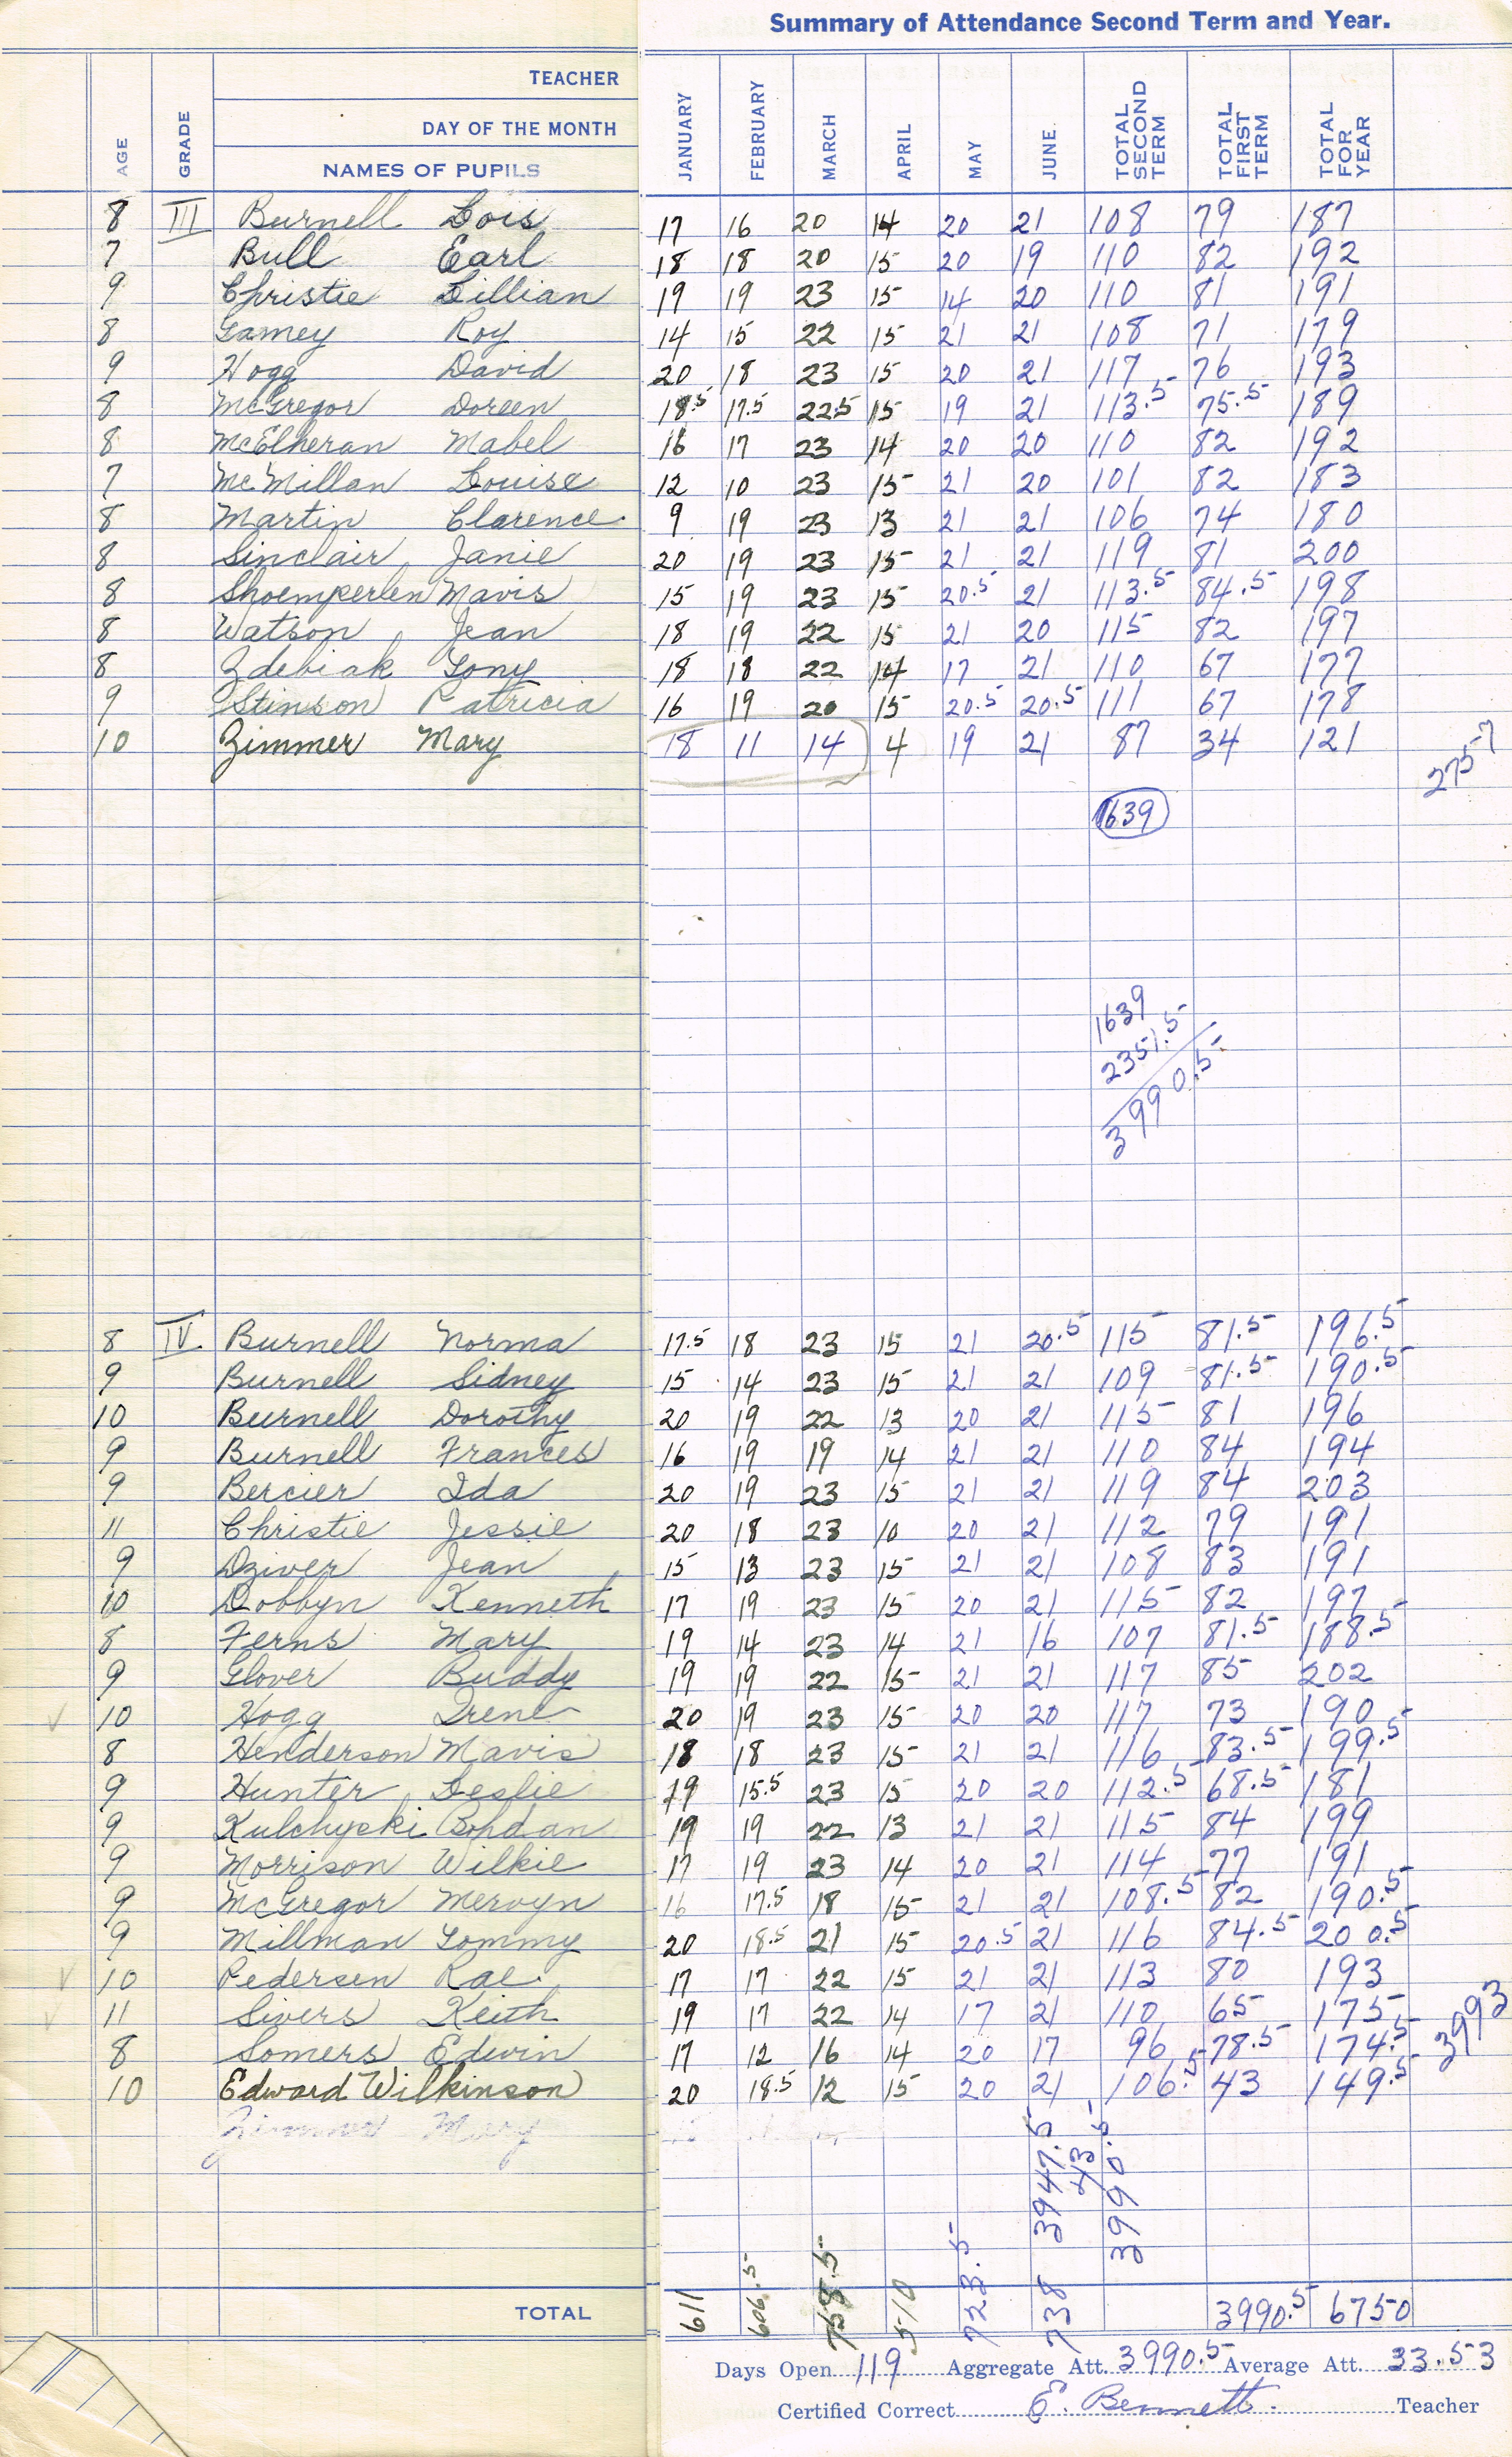 Summary of Attendance Second Term and Year.
TEACHER
DAY OF THE MONTH
AGE GRADE NAMES OF PUPILS JANUARY FEBRUARY MARCH APRIL MAY JUNE TOTAL SECOND TERM TOTAL FIRST TERM TOTAL FOR YEAR
8 III Burnell Lois 17 16 20 14 20 21 108 79 187
7 Bull Earl 18 18 20 15 20 19 110 82 192
9 Christie Lillian 19 19 23 15 14 20 110 81 191
8 Gamey Roy 14 15 22 15 21 21 108 71 179
9 Hogg David 20 18 23 15 20 21 117 76 193
8 McGregor Doreen 18.5 17.5 22.5 15 19 21 113.5 75.5 189
8 McElheran Mabel 16 17 23 14 20 20 110 82 192
7 McMillan Louise 12 10 23 15 21 20 101 82 183
8 Martin Clarence 9 19 23 13 21 21 106 74 180
8 Sinclair Janie 20 19 23 15 21 21 119 81 200
8 Shoemperlen Mavis 15 19 23 15 20.5 21 113.5 84.5 198
8 Watson Jean 18 19 22 15 21 20 115 82 197
8 Zdebiak Tony 18 18 22 14 17 21 110 67 177
9 Stinson Patricia 16 19 20 15 20.5 20.5 111 67 178
10 Zimmer Mary 18 11 14 4 19 21 87 34 121
2757
1639
1639
2351.5
3990.5
8 IV Burnell Norma 17.5 18 23 15 21 20.5 115 81.5 196.5
9 Burnell Sidney 15 14 23 15 21 21 109 81.5 190.5
10 Burnell Dorothy 20 19 22 13 20 21 115 81 196
9 Burnell Frances 16 19 19 14 21 21 110 84 194
9 Bercier Ida 20 19 23 15 21 21 119 84 203
11 Christie Jessie 20 18 23 10 20 21 112 79 191
9 Dziver Jean 15 13 23 15 21 21 108 83 191
10 Dobbyn Kenneth 17 19 23 15 20 21 115 82 197
8 Ferns Mary 19 14 23 14 21 16 107 81.5 188.5
9 Glover Buddy 19 19 22 15 21 21 117 85 202
10 Hogg Irene 20 19 23 15 20 20 117 73 190
8 Henderson Mavis 18 18 23 15 21 21 116 83.5 199.5
9 Hunter Leslie 19 15.5 23 15 20 20 112.5 68.5 181
9 Kulchyski Bohdan 19 19 22 13 21 21 115 84 199
9 Morrison Wilkie 17 19 23 14 20 21 114 77 191
9 McGregor Mervyn 16 17.5 18 15 21 21 108.5 82 190.5
9 Millman Tommy 20 18.5 21 15 20.5 21 116 84.5 200.5
10 Pedersen Rae 17 17 22 15 21 21 113 80 193
11 Sivers Keith 19 17 22 14 17 21 110 65 175
8 Somers Edwin 17 12 16 14 20 17 96 78.5 174.5
10 Edward Wilkinson 20 18.5 12 15 20 21 106.5 43 149.5
3993
Zimmer Mary
3947.5
43
3990.5
TOTAL 611 606.5 758.5 510 723.5 738 3990.5 6750
Days Open 119 Aggregate Att. 3990.5 Average Att. 33.53
Certified Correct E. Bennett. Teacher